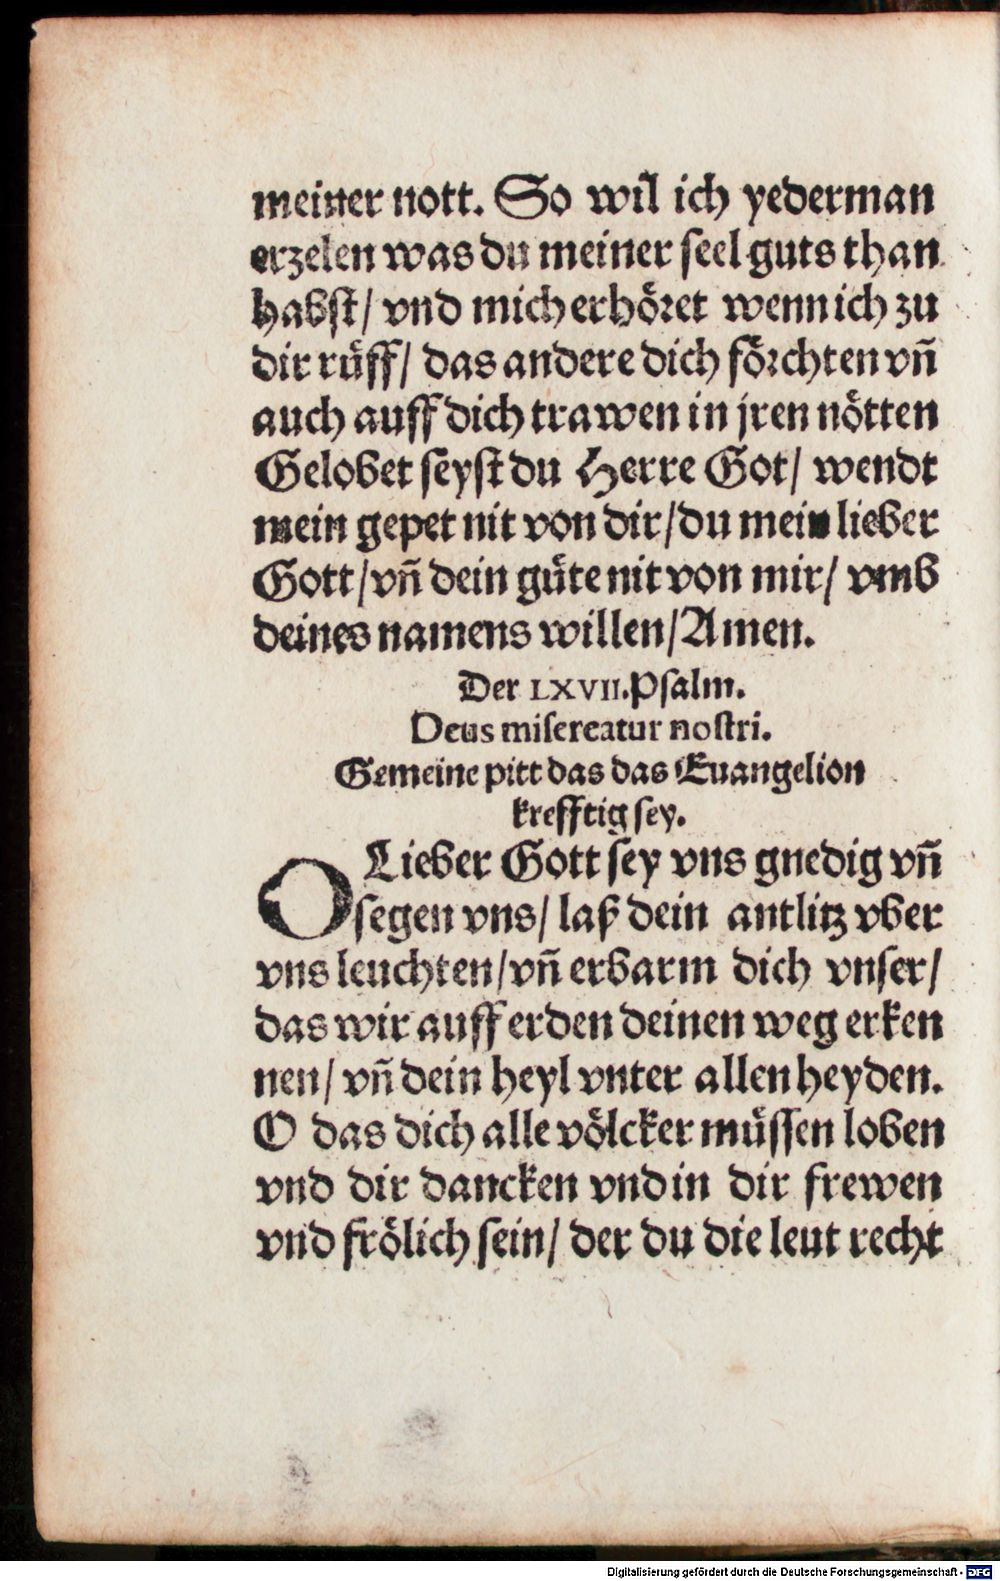 meiner nott. So wil ich yederman
erzelen was du meiner seel guts than
habst/ vnd mich erhöret wenn ich zu
dir rüff/ das andere dich förchten vñ
auch auff dich trawen in jren nötten
Gelobet seyst du Herre Got/ wendt
mein gepet nit von dir/ du mein lieber
Gott/ vñ dein güte nit von mir/ vmb
deines namens willen/ Amen.
Der LXVII. Psalm.
Deus misereatur nostri.
Gemeine pitt das das Euangelion
krefftig sey.
O Lieber Gott sey vns gnedig vñ
segen vns/ laß dein antlitz vber
vns leuchten/ vñ erbarm dich vnser/
das wir auff erden deinen weg erken
nen/ vñ dein heyl vnter allen heyden.
O das dich alle völcker müssen loben
vnd dir dancken vnd in dir frewen
vnd frölich sein/ der du die leut recht
Digitalisierung gefördert durch die Deutsche Forschungsgemeinschaft - DFG